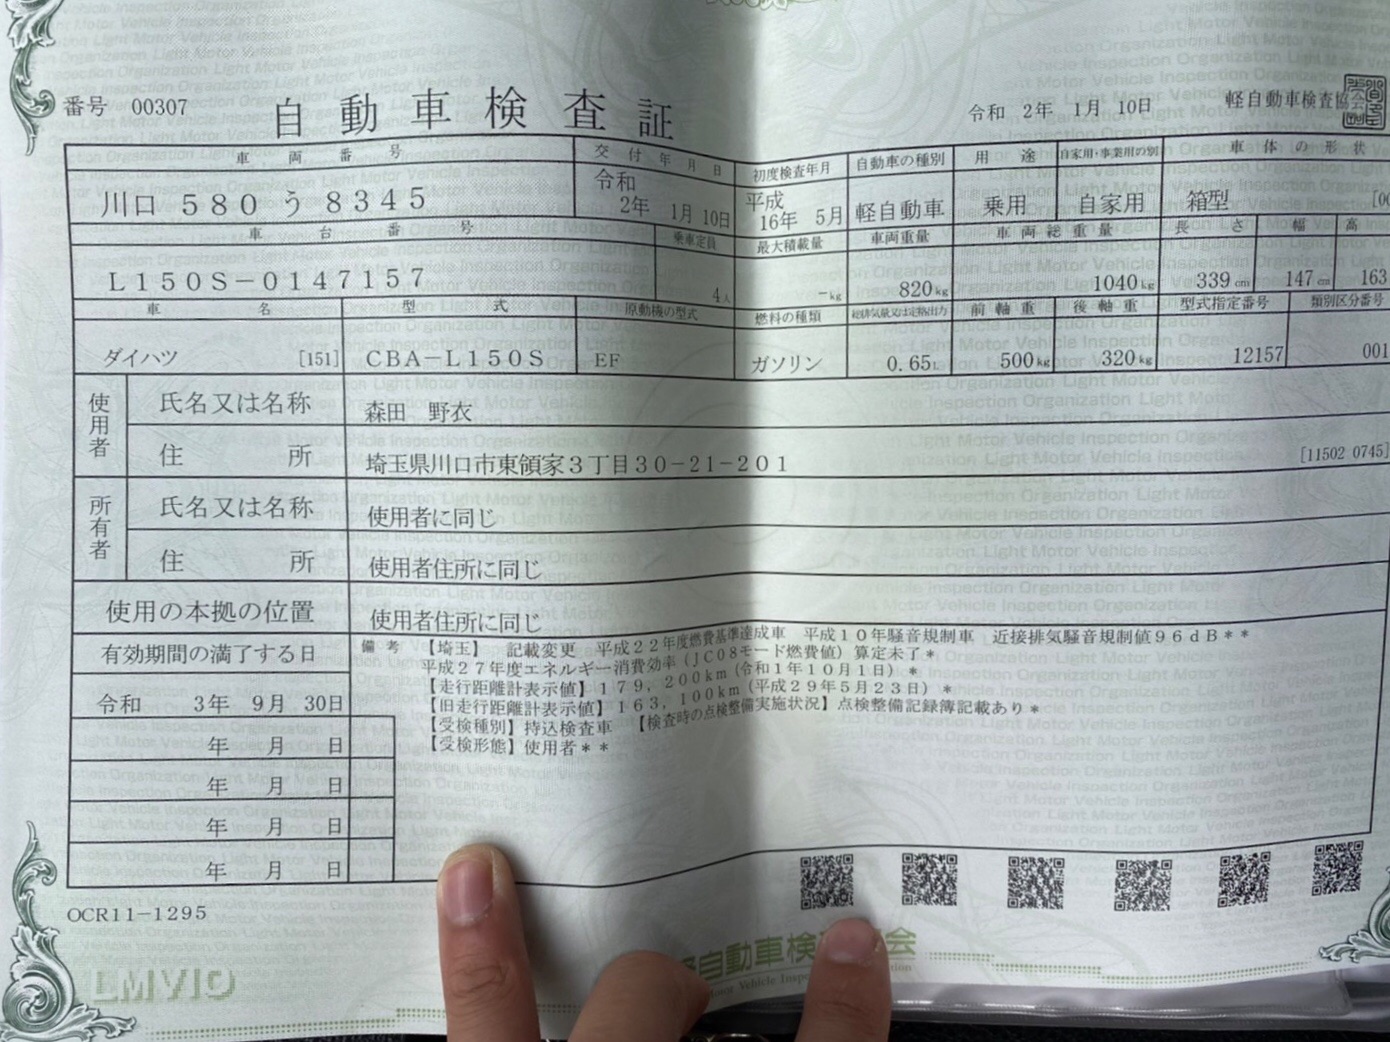 番号 00307
自動車検査証
令和 2年 1月 10日 軽自動車検査協会
車両番号 交付年月日 初度検査年月 自動車の種別 用途 自家用・事業用の別 車体の形状
川口 580 う 8345 令和 2年 1月 10日 平成 16年 5月 軽自動車 乗用 自家用 箱型
車台番号 乗車定員 最大積載量 車両重量 車両総重量 長さ 幅 高
L150S-0147157 4人 -kg 820kg 1040kg 339cm 147cm 163
車名 型式 原動機の型式 燃料の種類 総排気量又は定格出力 前軸重 後軸重 型式指定番号 類別区分番号
ダイハツ [151] CBA-L150S EF ガソリン 0.65L 500kg 320kg 12157 001
使用者 氏名又は名称 森田 野衣
住所 埼玉県川口市東領家3丁目30-21-201 [11502 0745]
所有者 氏名又は名称 使用者に同じ
住所 使用者住所に同じ
使用の本拠の位置 使用者住所に同じ
有効期間の満了する日
令和 3年 9月 30日
年 月 日
年 月 日
年 月 日
年 月 日
備考 【埼玉】 記載変更 平成22年度燃費基準達成車 平成10年騒音規制車 近接排気騒音規制値96dB**
平成27年度エネルギー消費効率(JC08モード燃費値)算定未了*
【走行距離計表示値】179,200km(令和1年10月1日)*
【旧走行距離計表示値】163,100km(平成29年5月23日)*
【受検種別】持込検査車 【検査時の点検整備実施状況】点検整備記録簿記載あり*
【受検形態】使用者**
OCR11-1295
LMVIO
軽自動車検
会